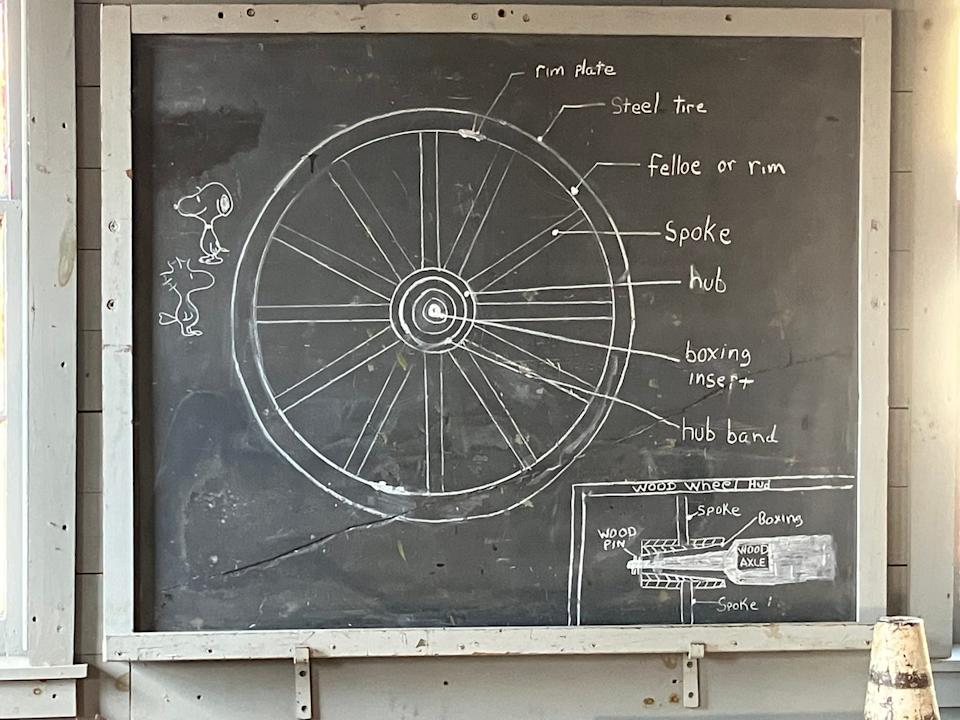 rim plate
Steel tire
felloe or rim
Spoke
hub
boxing
insert
hub band
WOOD Wheel Hud
Spoke
Boxing
WOOD
PIN
WOOD
AXLE
Spoke